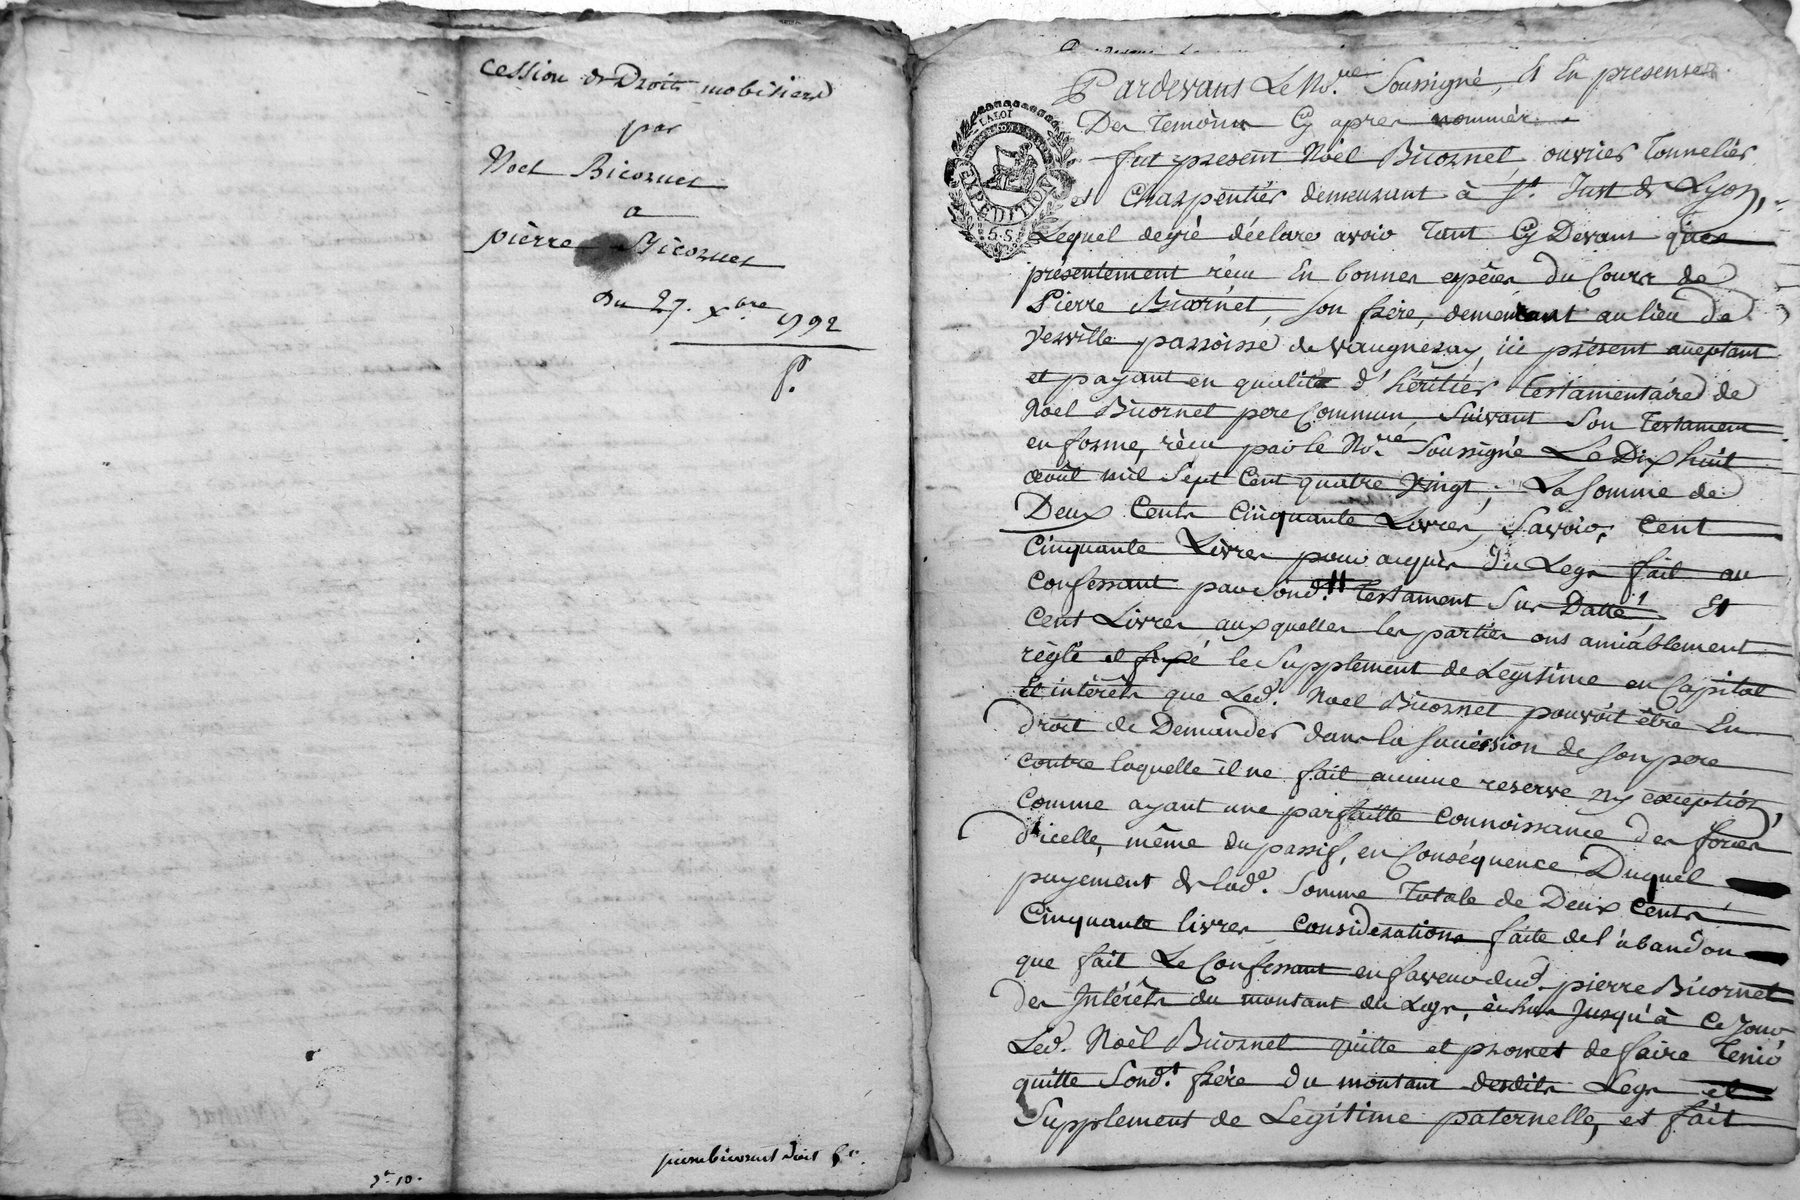 cession de Droits mobiliers
par
Noel Bicornet
a
pierre Bicornet
du 27. xbre 1792
P.
pierre bicornet doit 6lt.
3lt 10.
Pardevant Le No.re Soussigné, et En presence
Des temoins Cy apres nommés
fut present Noël Bicornet, ouvrier tonnelier
et Charpentier demeurant à St. Just de Lyon,
Lequel de gré déclare avoir tant Cy Devant que
présentement réçu En bonnes espèces du Cours de
Pierre Bicornet, son frère, demeurant au lieu de
verville parroisse de vaugneray, ici présent acceptant
et payant en qualité d'héritier testamentaire de
Noël Bicornet pere Commun, suivant son testament
en forme, réçu par le No.re Soussigné Le Dix huit
août mil Sept Cent quatre Vingt, La Somme de
Deux Cents Cinquante Livres, Savoir, Cent
Cinquante Livres pour acquis du Legs fait au
Confessant par Sond.t testament Sus Datté, Et
Cent Livres auxquelles les parties ont amiablement
règlé et fixé le Supplement de Legitime en Capital
Et intérêts que Led. Noel Bicornet pouvoit être En
droit de Demander dans la succession de son pere
contre laquelle il ne fait aucune reserve ny exception,
Comme ayant une parfaitte Connoissance des forces
d'icelle, même du passif, en Conséquence Duquel
payement de lad.e Somme totale de Deux Cents
Cinquante livres, considerations faite de l'abandon
que fait Le Confessant en faveur dud. pierre Bicornet
des Intérêts du montant du Legs, échus Jusqu'à Ce Jour
Led. Noël Bicornet quitte et promet de faire tenir
quitte Sond.t frère du montant desdits Legs et
Supplement de Legitime paternelle, et fait
LA LOI
EXPEDITION
5.S.